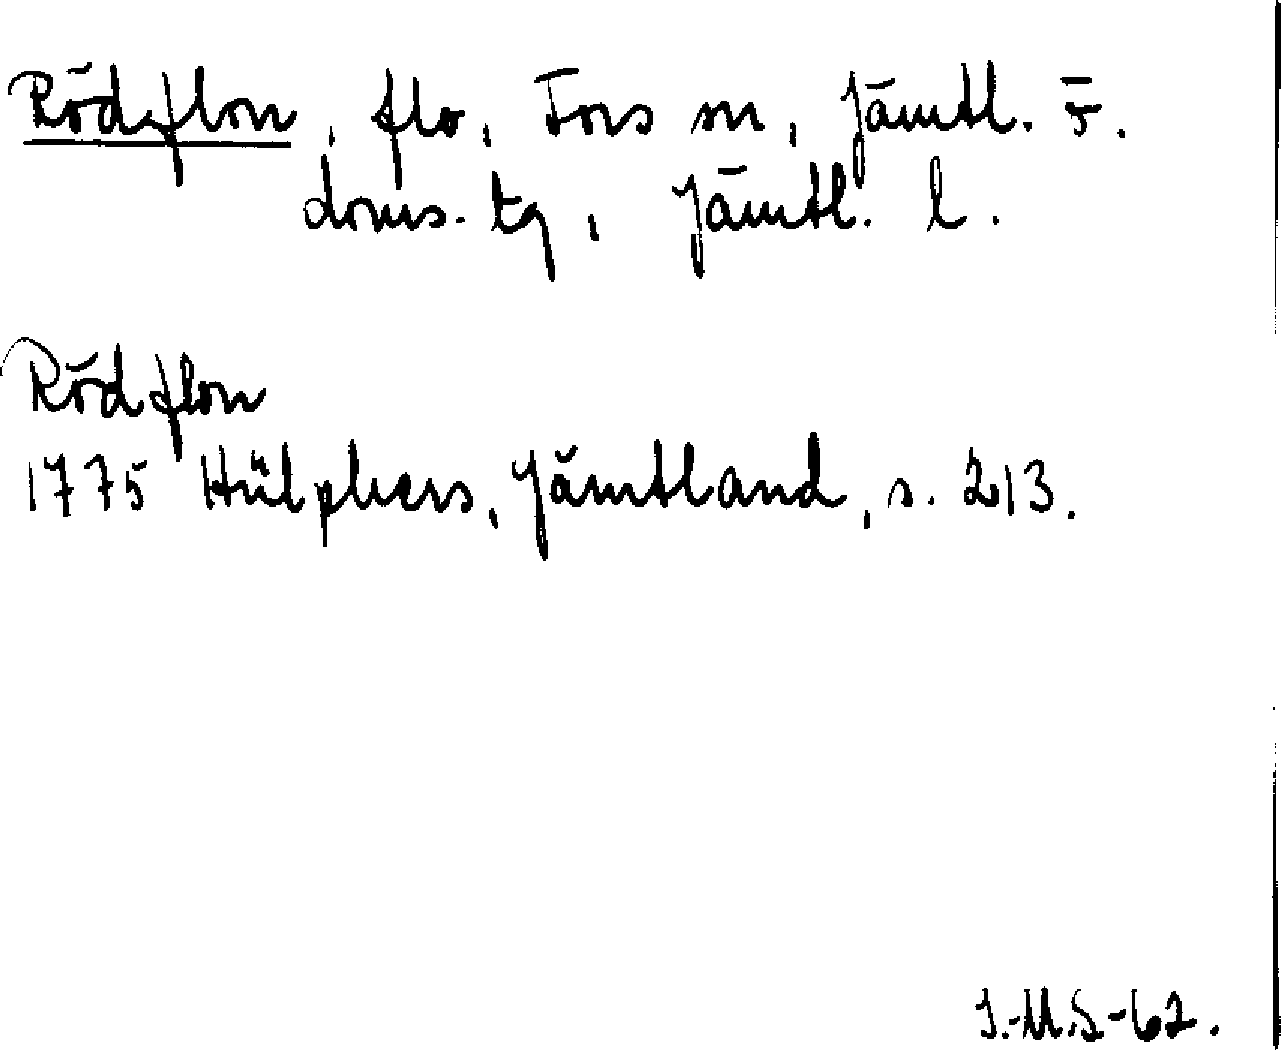 Rödflon, flo, Fors sn, Jämtl. ö.
doms. tg, Jämtl. l.
Rödflon
1775 Hülphers, Jämtland, s. 213.
I.-M.S-62.